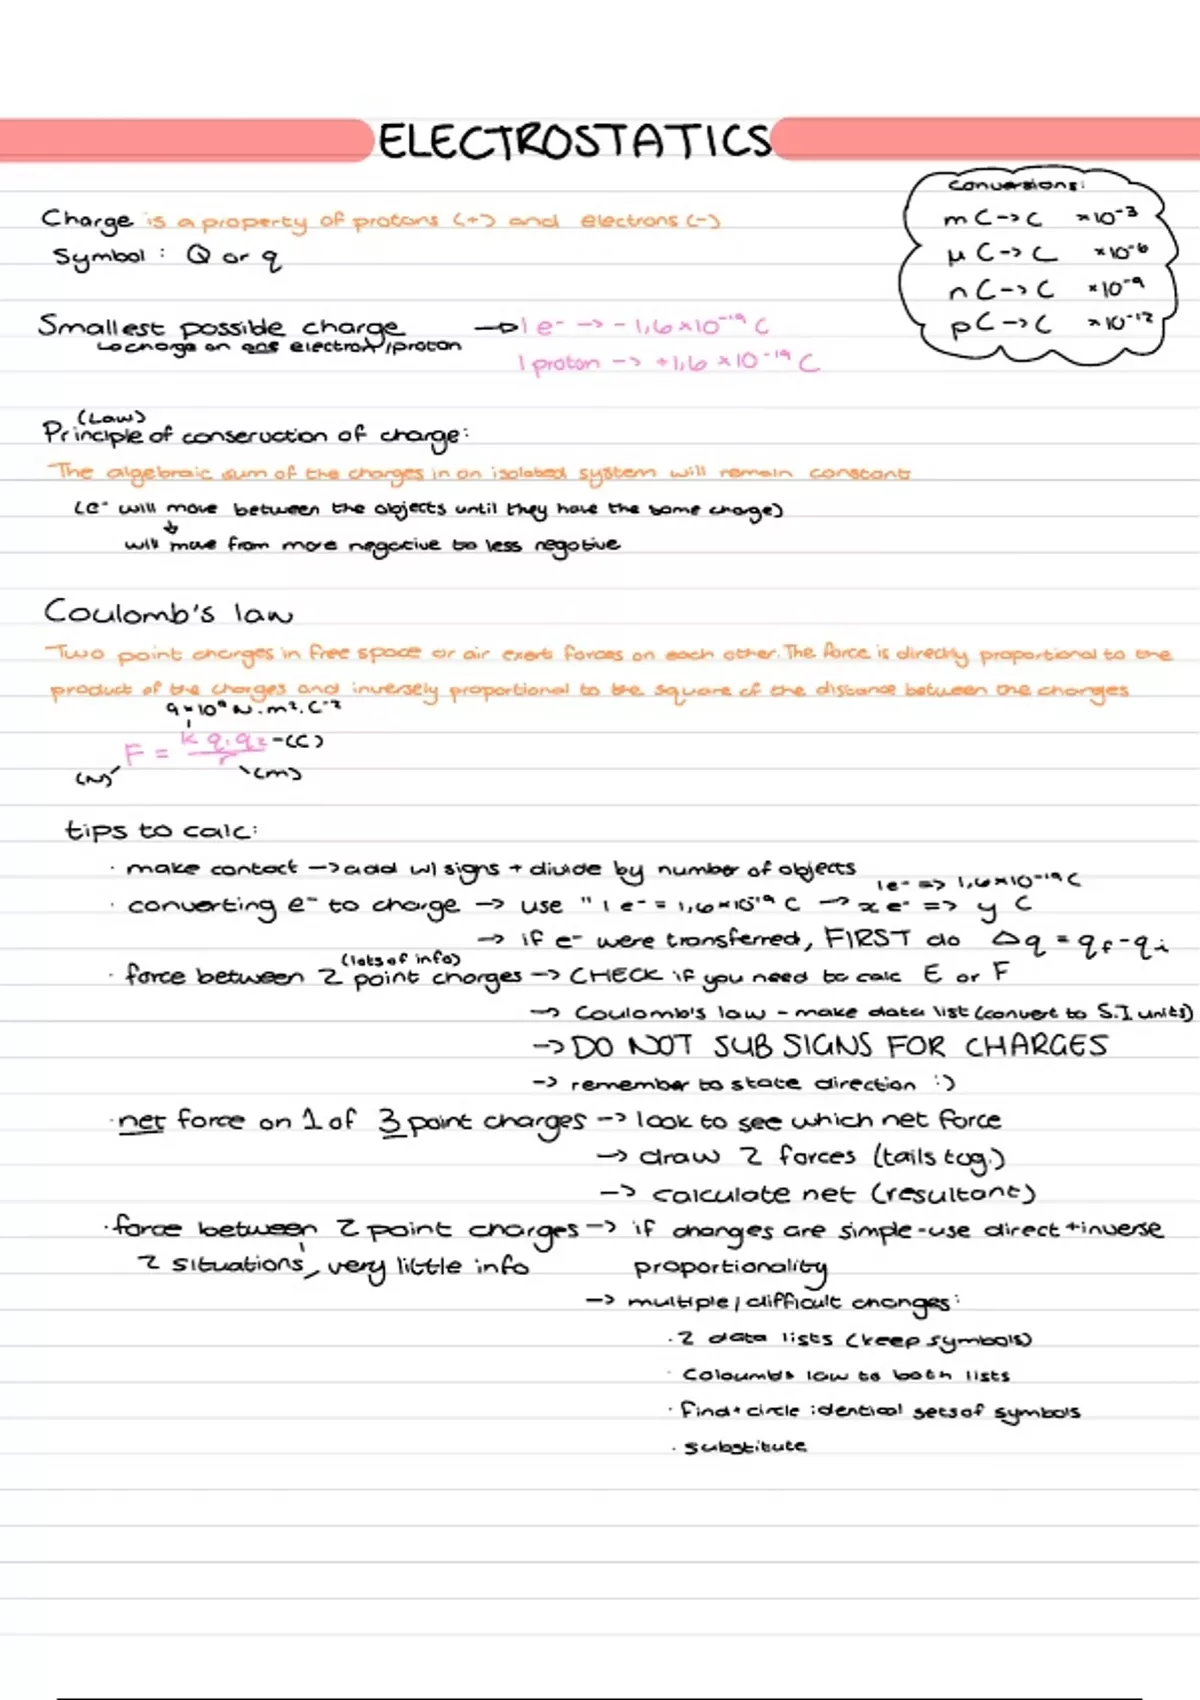 ELECTROSTATICS
Conversions:
mC → C ×10⁻³
μC → C ×10⁻⁶
nC → C ×10⁻⁹
pC → C ×10⁻¹²
Charge is a property of protons (+) and electrons (-)
Symbol : Q or q
Smallest possible charge → 1 e⁻ → - 1,6 × 10⁻¹⁹ C
↳ charge on one electron/proton
1 proton → +1,6 × 10⁻¹⁹ C
(Law)
Principle of conservation of charge:
The algebraic sum of the charges in an isolated system will remain constant
(e⁻ will move between the objects until they have the same charge)
↓
will move from more negative to less negative
Coulomb's law
Two point charges in free space or air exert forces on each other. The force is directly proportional to the
product of the charges and inversely proportional to the square of the distance between the charges
9 × 10⁹ N.m².C⁻²
F = k q₁ q₂ - (C)
r
(N) (m)
tips to calc:
· make contact → add w/ signs + divide by number of objects
1e⁻ => 1,6×10⁻¹⁹ C
· converting e⁻ to charge → use " 1 e⁻ = 1,6×10⁻¹⁹ C → x e⁻ => y C
→ if e⁻ were transferred, FIRST do Δq = qf - qi
(lots of info)
· force between 2 point charges → CHECK if you need to calc E or F
→ Coulomb's law - make data list (convert to S.I. units)
→ DO NOT SUB SIGNS FOR CHARGES
→ remember to state direction :)
· net force on 1 of 3 point charges → look to see which net force
→ draw 2 forces (tails tog.)
→ calculate net (resultant)
· force between 2 point charges → if changes are simple - use direct + inverse
2 situations, very little info proportionality
→ multiple / difficult changes:
· 2 data lists (keep symbols)
· Coloumb's law to both lists
· find + circle identical sets of symbols
· substitute